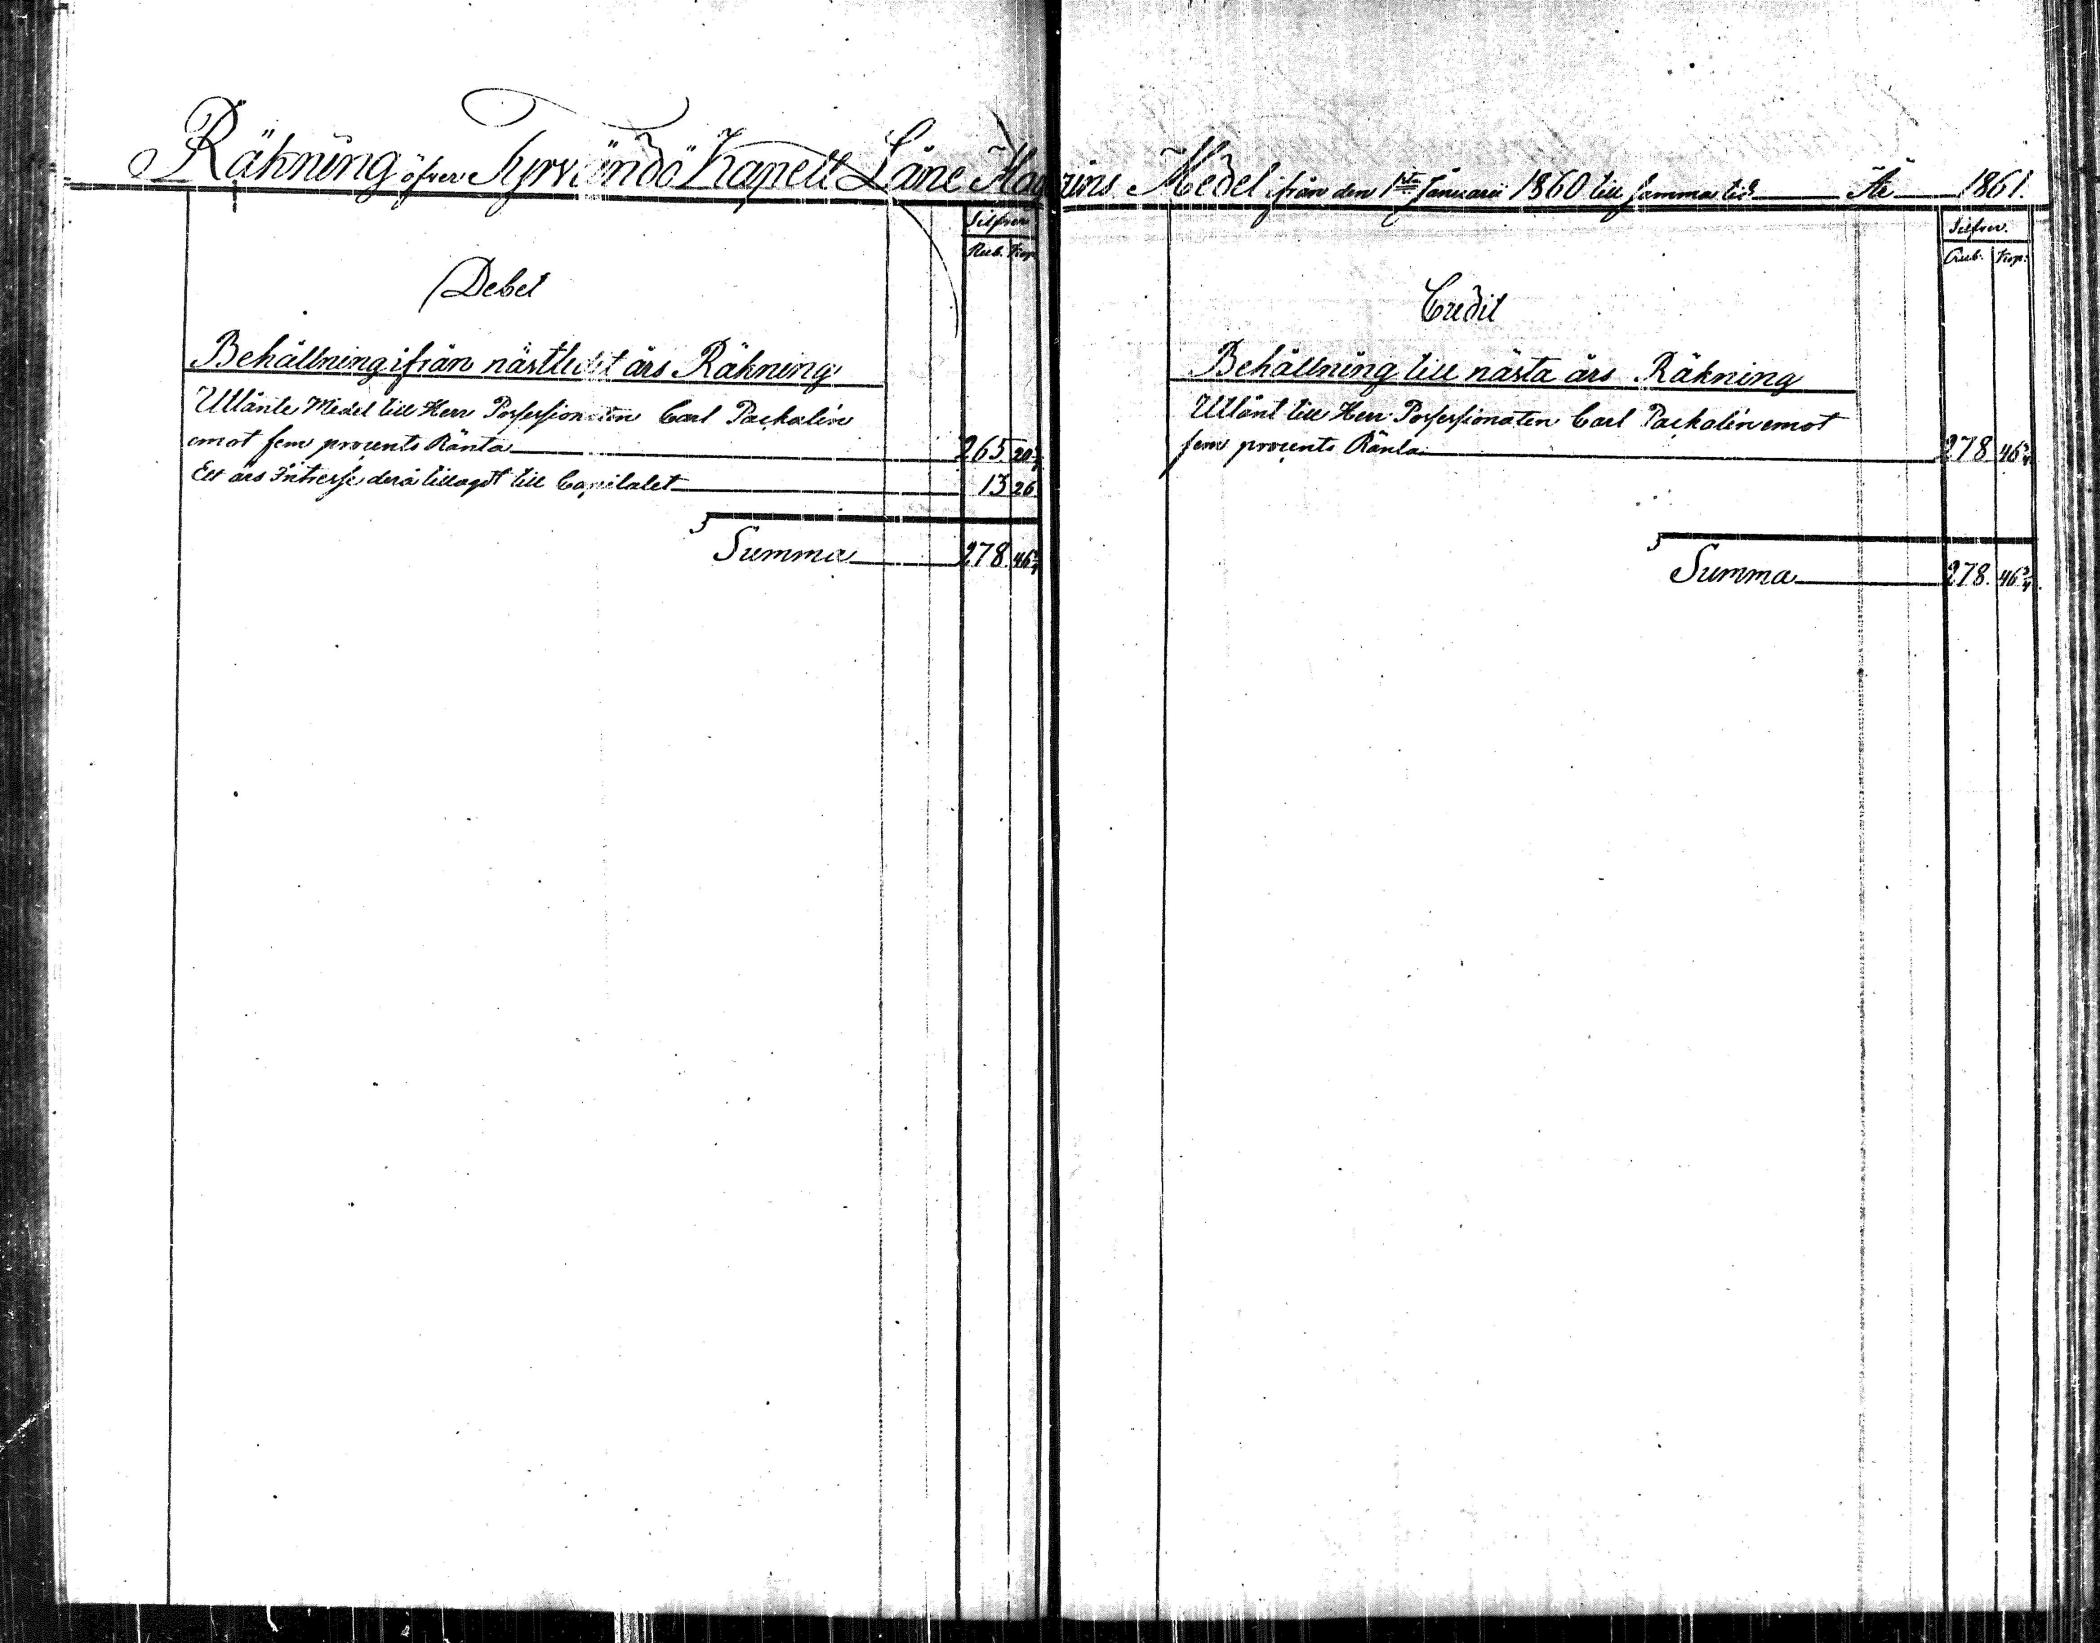 Räkning öfver Tyrvändö Kapell Låne Magazins Medel ifrån den 1sta Januarii 1860 till samma tid År 1861.
Silfver
Rub. Kop.
Debet
Behållning ifrån nästledet års Räkning
Utlånte Medel till Herr Possessionaten Carl Packalén
emot fem procents Ränta 265 20 3/4
Ett års Intresse derå tillagdt till Capitalet 13 26
Summa 278. 46 3/4
Silfver.
Rub. Kop.
Credit
Behållning till nästa års Räkning
Utlånt till Herr Possessionaten Carl Packalén emot
fem procents Ränta 278 46 3/4
Summa 278. 46 3/4